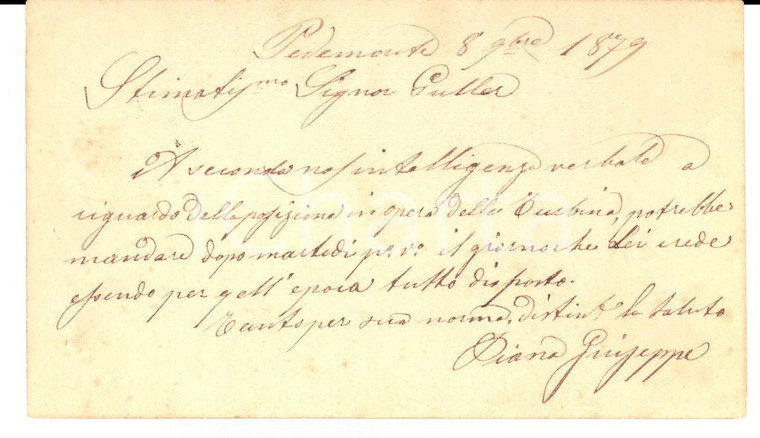 Pedemonte 8 9bre 1879
Stimatissmo Signor Puller
A seconda nos intelligenza verbale a
riguardo della posizione in opera della Turbina, potrebbe
mandare dopo martedi p.o v.o il giorno che Lei crede
essendo per quell'epoca tutto disposto.
Tanto per sua norma, distint.e la saluto
Piana Giuseppe